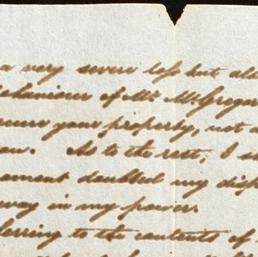 a very severe loss but al
behaviour of Mr. McGregor
secure your property, not a
an. As to the rest, I s
ament doubted my disp
way in my power.
ferring to the contents of